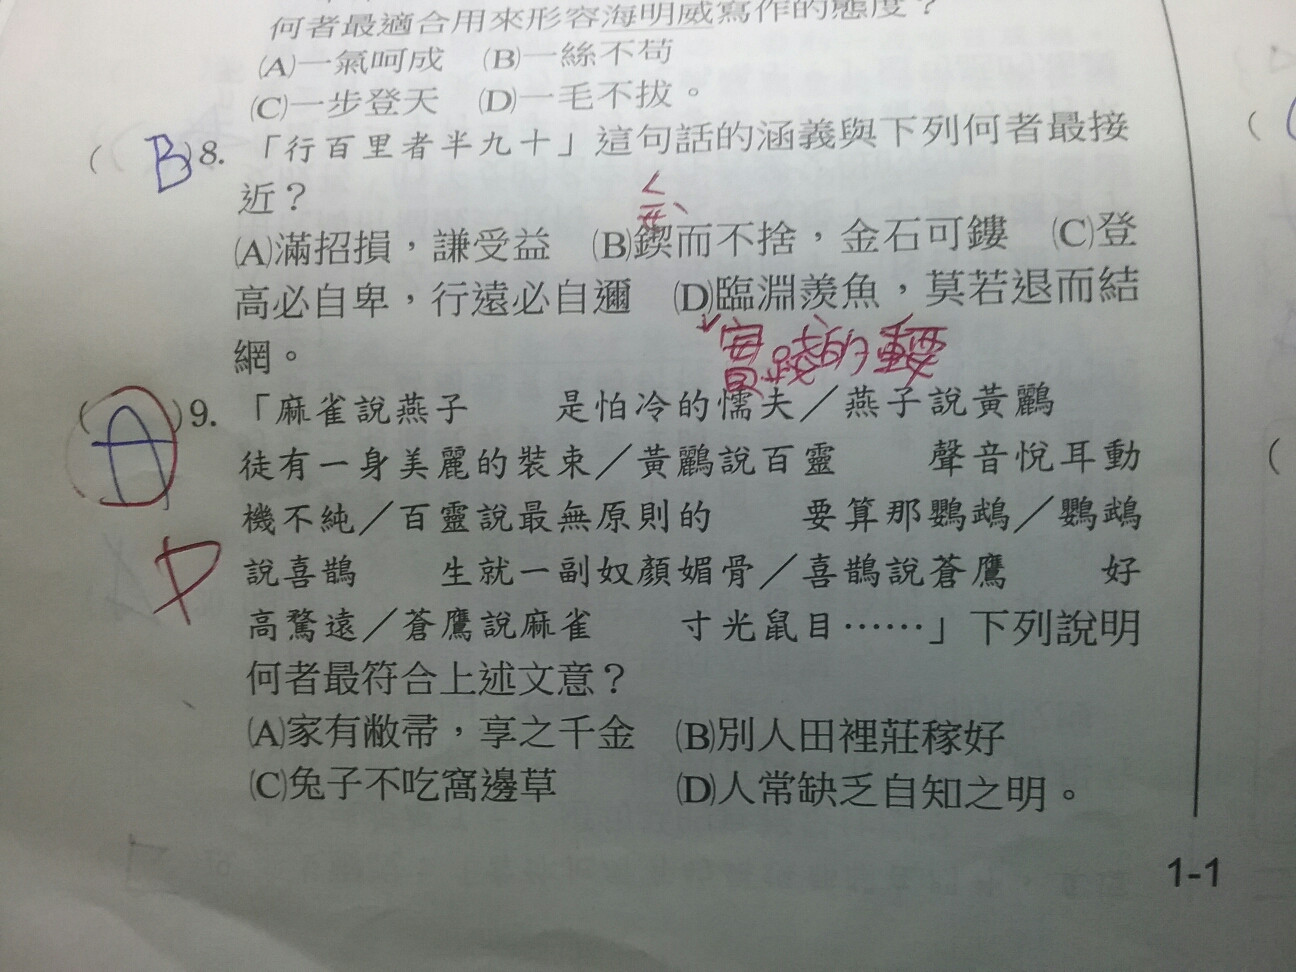 何者最適合用來形容海明威寫作的態度？
(A)一氣呵成　(B)一絲不苟
(C)一步登天　(D)一毛不拔。
( B )8. 「行百里者半九十」這句話的涵義與下列何者最接
近？
ㄑㄧㄝˋ
(A)滿招損，謙受益　(B)鍥而不捨，金石可鏤　(C)登
高必自卑，行遠必自邇　(D)臨淵羨魚，莫若退而結
網。
實踐的重要
( A )9. 「麻雀說燕子　　是怕冷的懦夫／燕子說黃鸝
徒有一身美麗的裝束／黃鸝說百靈　　聲音悅耳動
機不純／百靈說最無原則的　　要算那鸚鵡／鸚鵡
D
說喜鵲　　生就一副奴顏媚骨／喜鵲說蒼鷹　　好
高騖遠／蒼鷹說麻雀　　寸光鼠目……」下列說明
何者最符合上述文意？
(A)家有敝帚，享之千金　(B)別人田裡莊稼好
(C)兔子不吃窩邊草　(D)人常缺乏自知之明。
1-1